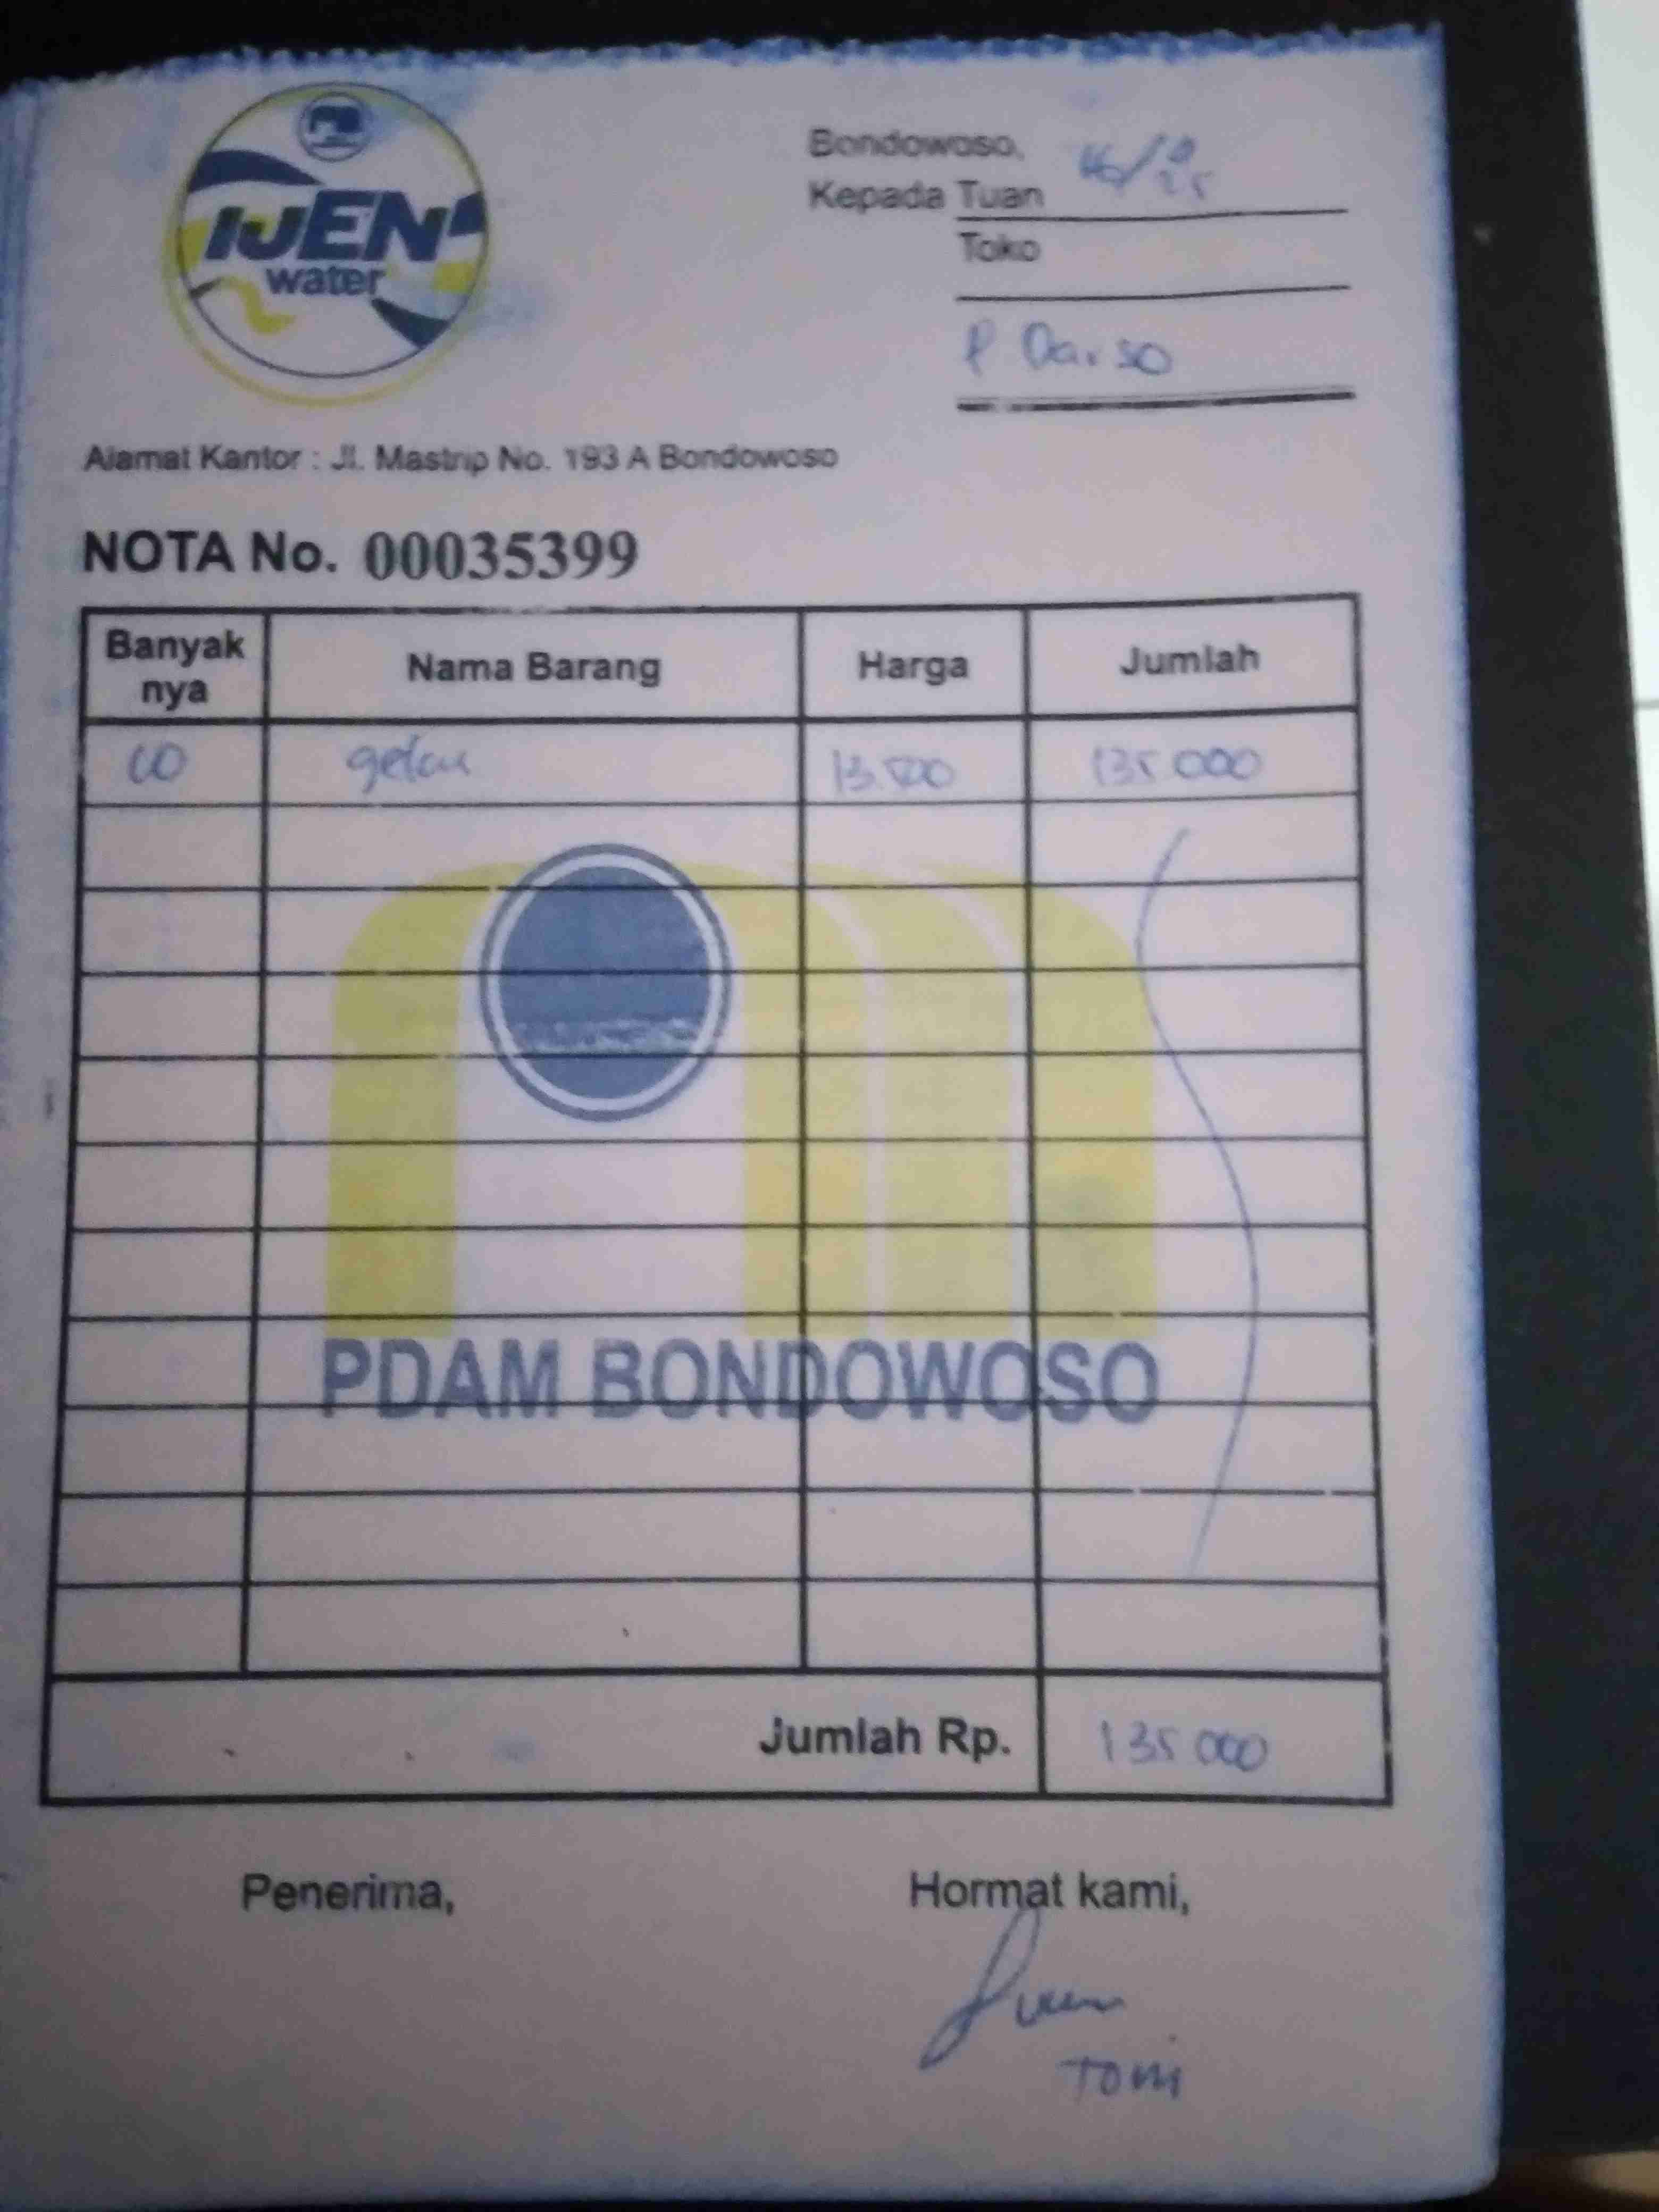 IJEN
water
Bondowoso,
Kepada Tuan
Toko
P Darso
Alamat Kantor : Jl. Mastrip No. 193 A Bondowoso
NOTA No. 00035399
Banyak nya Nama Barang Harga Jumlah
10 gelas 13.500 135.000
PDAM BONDOWOSO
Jumlah Rp. 135 000
Penerima, Hormat kami,
Toni